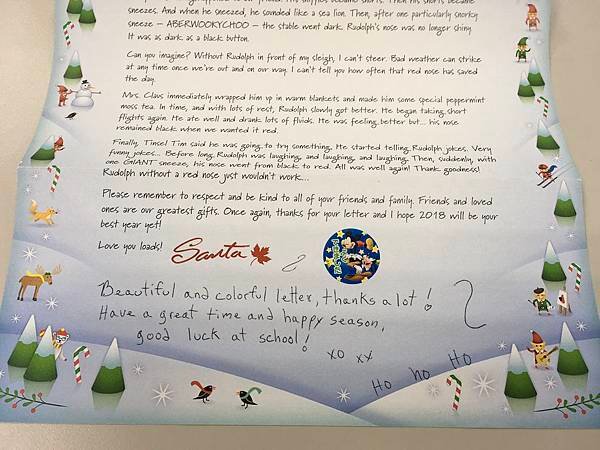 sneezes. And when he sneezed, he sounded like a sea lion. Then, after one particularly snorky
sneeze – ABERWOOKYCHOO – the stable went dark. Rudolph's nose was no longer shiny.
It was as dark as a black button.
Can you imagine? Without Rudolph in front of my sleigh, I can't steer. Bad weather can strike
at any time once we're out and on our way. I can't tell you how often that red nose has saved
the day.
Mrs. Claus immediately wrapped him up in warm blankets and made him some special peppermint
moss tea. In time, and with lots of rest, Rudolph slowly got better. He began taking short
flights again. He ate well and drank lots of fluids. He was feeling better but... his nose
remained black when we wanted it red.
Finally, Tinsel Tim said he was going to try something. He started telling Rudolph jokes. Very
funny jokes... Before long, Rudolph was laughing, and laughing, and laughing. Then, suddenly, with
one GIANT sneeze, his nose went from black to red. All was well again! Thank goodness!
Rudolph without a red nose just wouldn't work...
Please remember to respect and be kind to all of your friends and family. Friends and loved
ones are our greatest gifts. Once again, thanks for your letter and I hope 2018 will be your
best year yet!
Love you loads! Santa
Beautiful and colorful letter, thanks a lot!
Have a great time and happy season,
good luck at school!
xo xx
HO HO HO